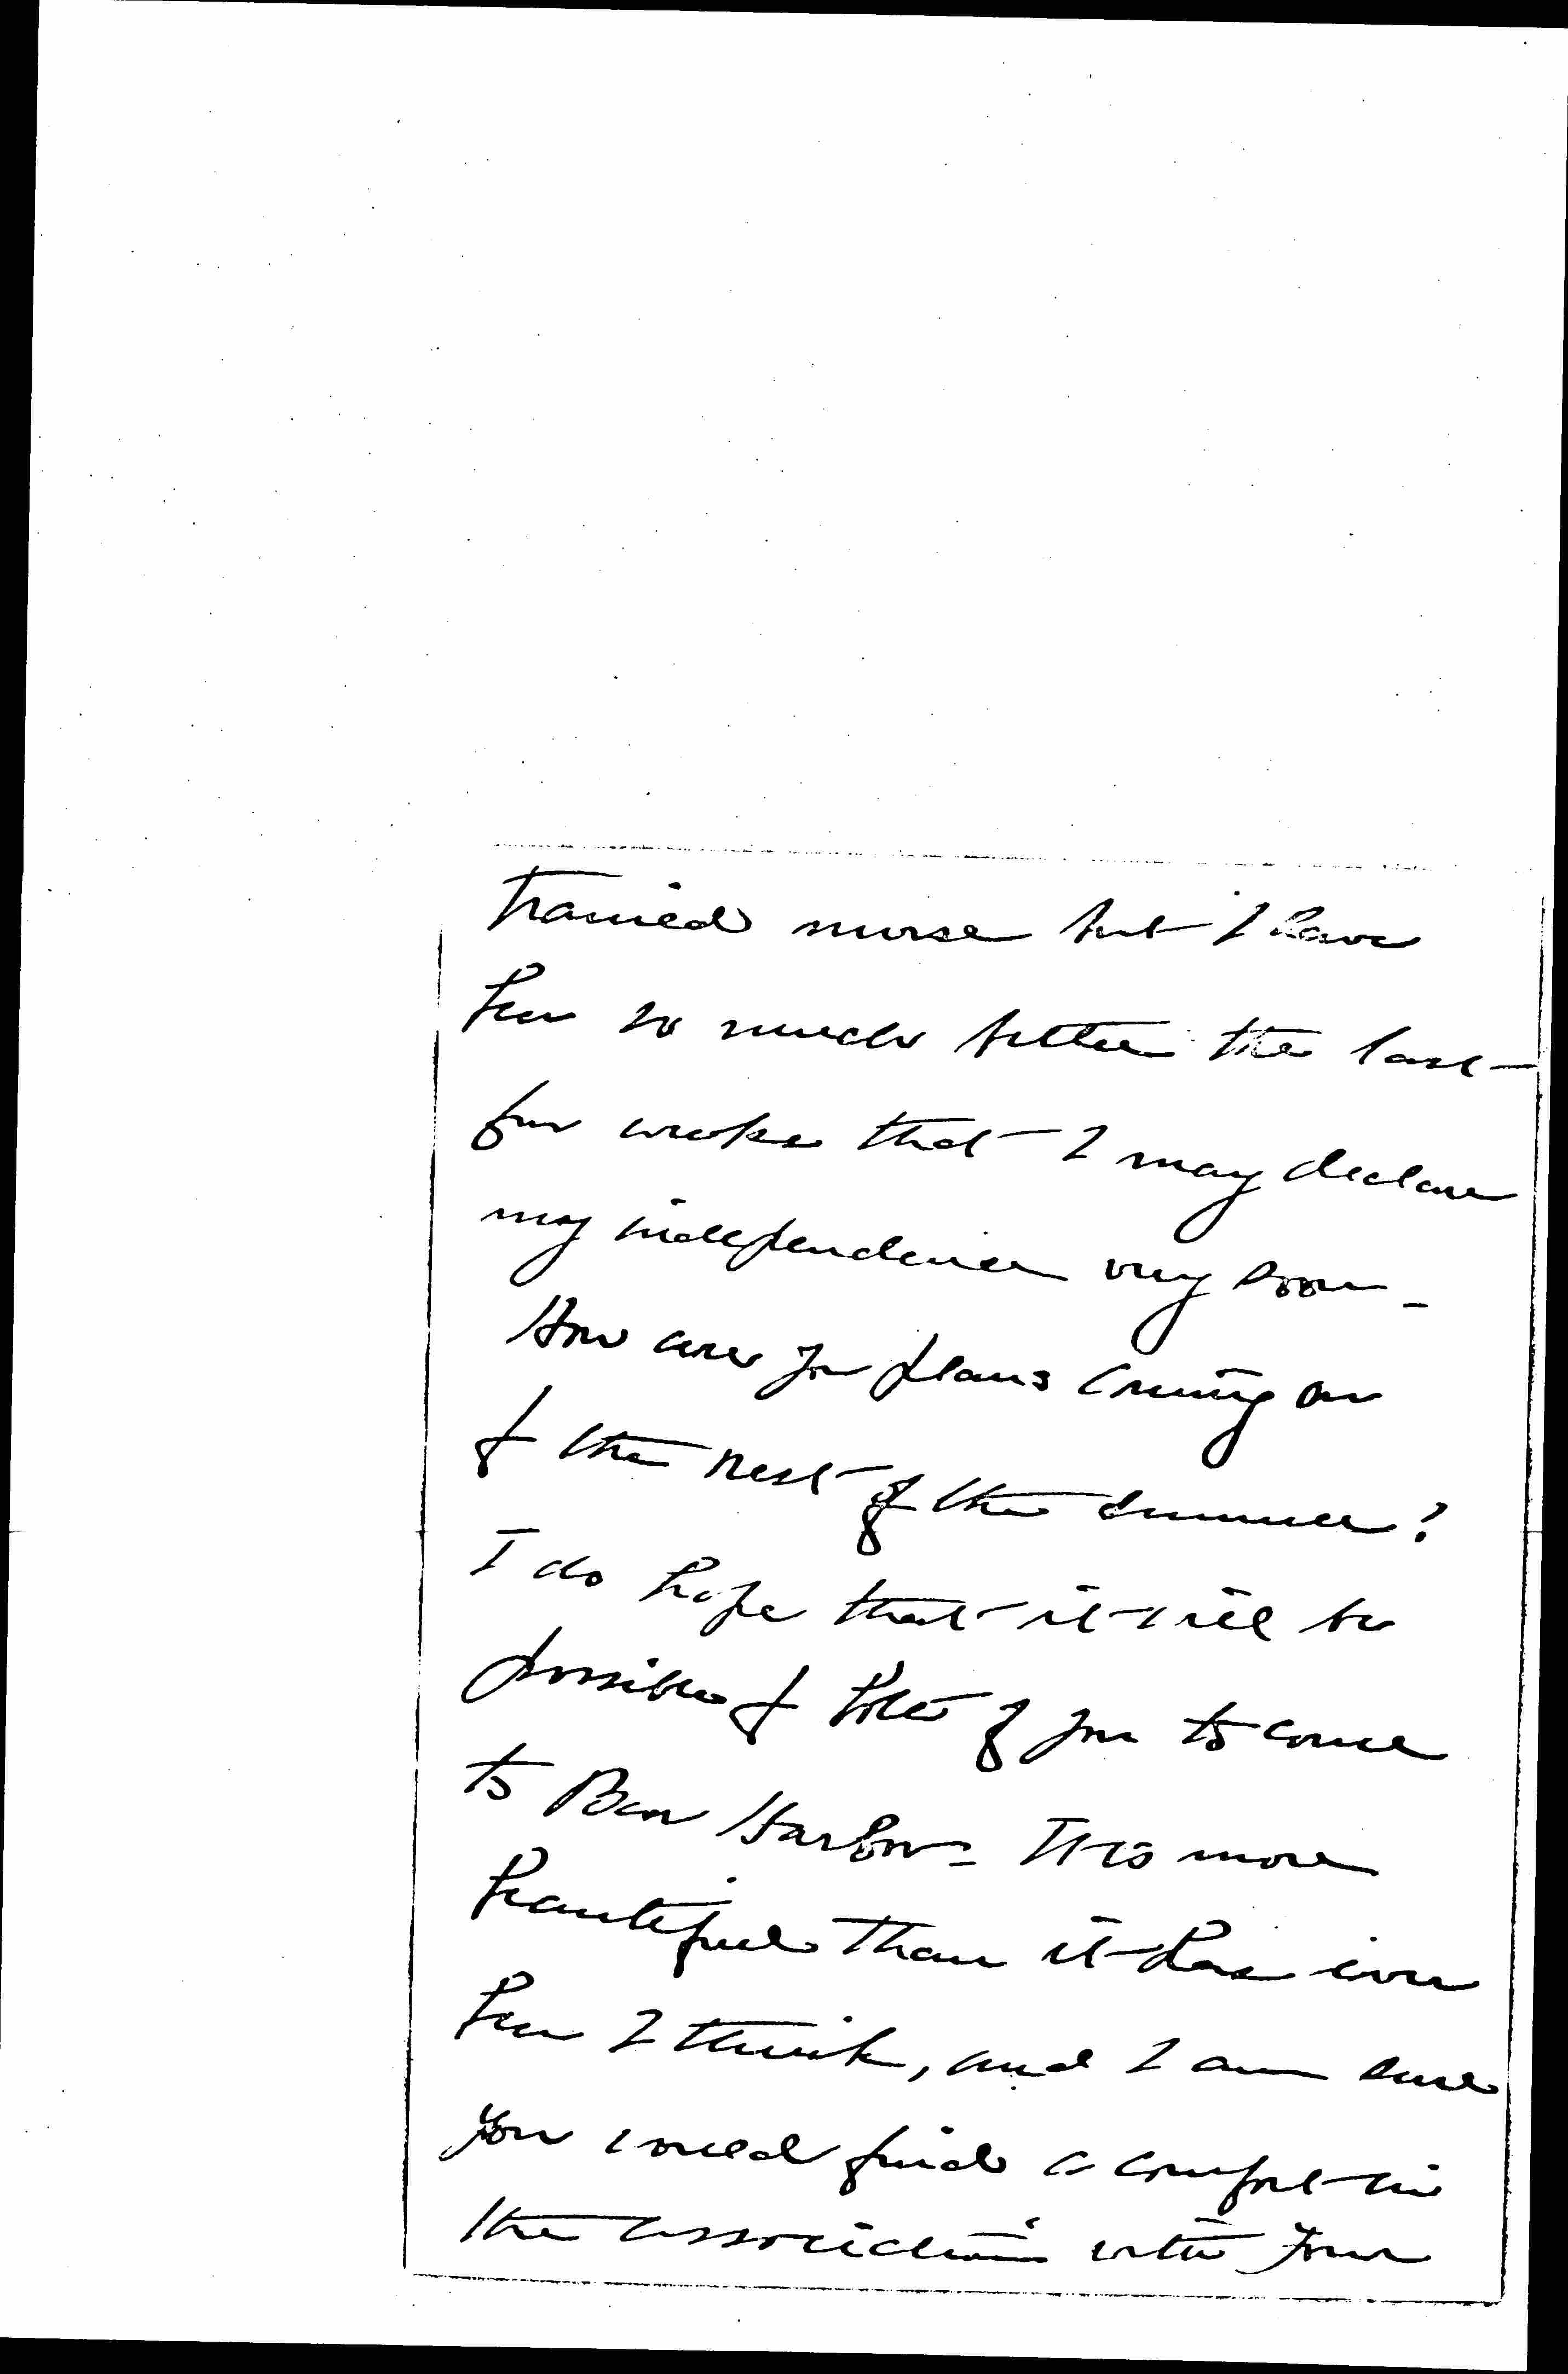 trained nurse but I have
been so much better the last
few weeks that I may declare
my independence very soon -
How are your plans coming on
for the rest of the summer?
I do hope that it will be
possible for both of you to come
to Bar Harbor - It is more
beautiful than it has ever
been I think, and I am sure
you would find a comfort in
the association with your